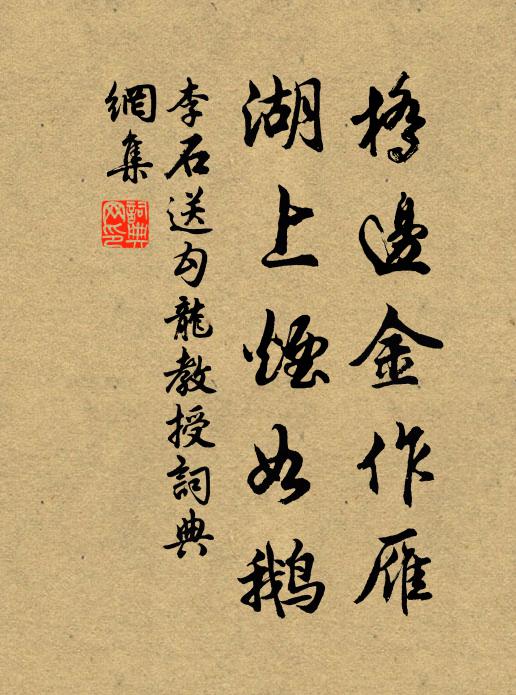 橋邊金作雁
湖上煙如鵝
李石送勾龍教授詞典
網集
詞典
网印